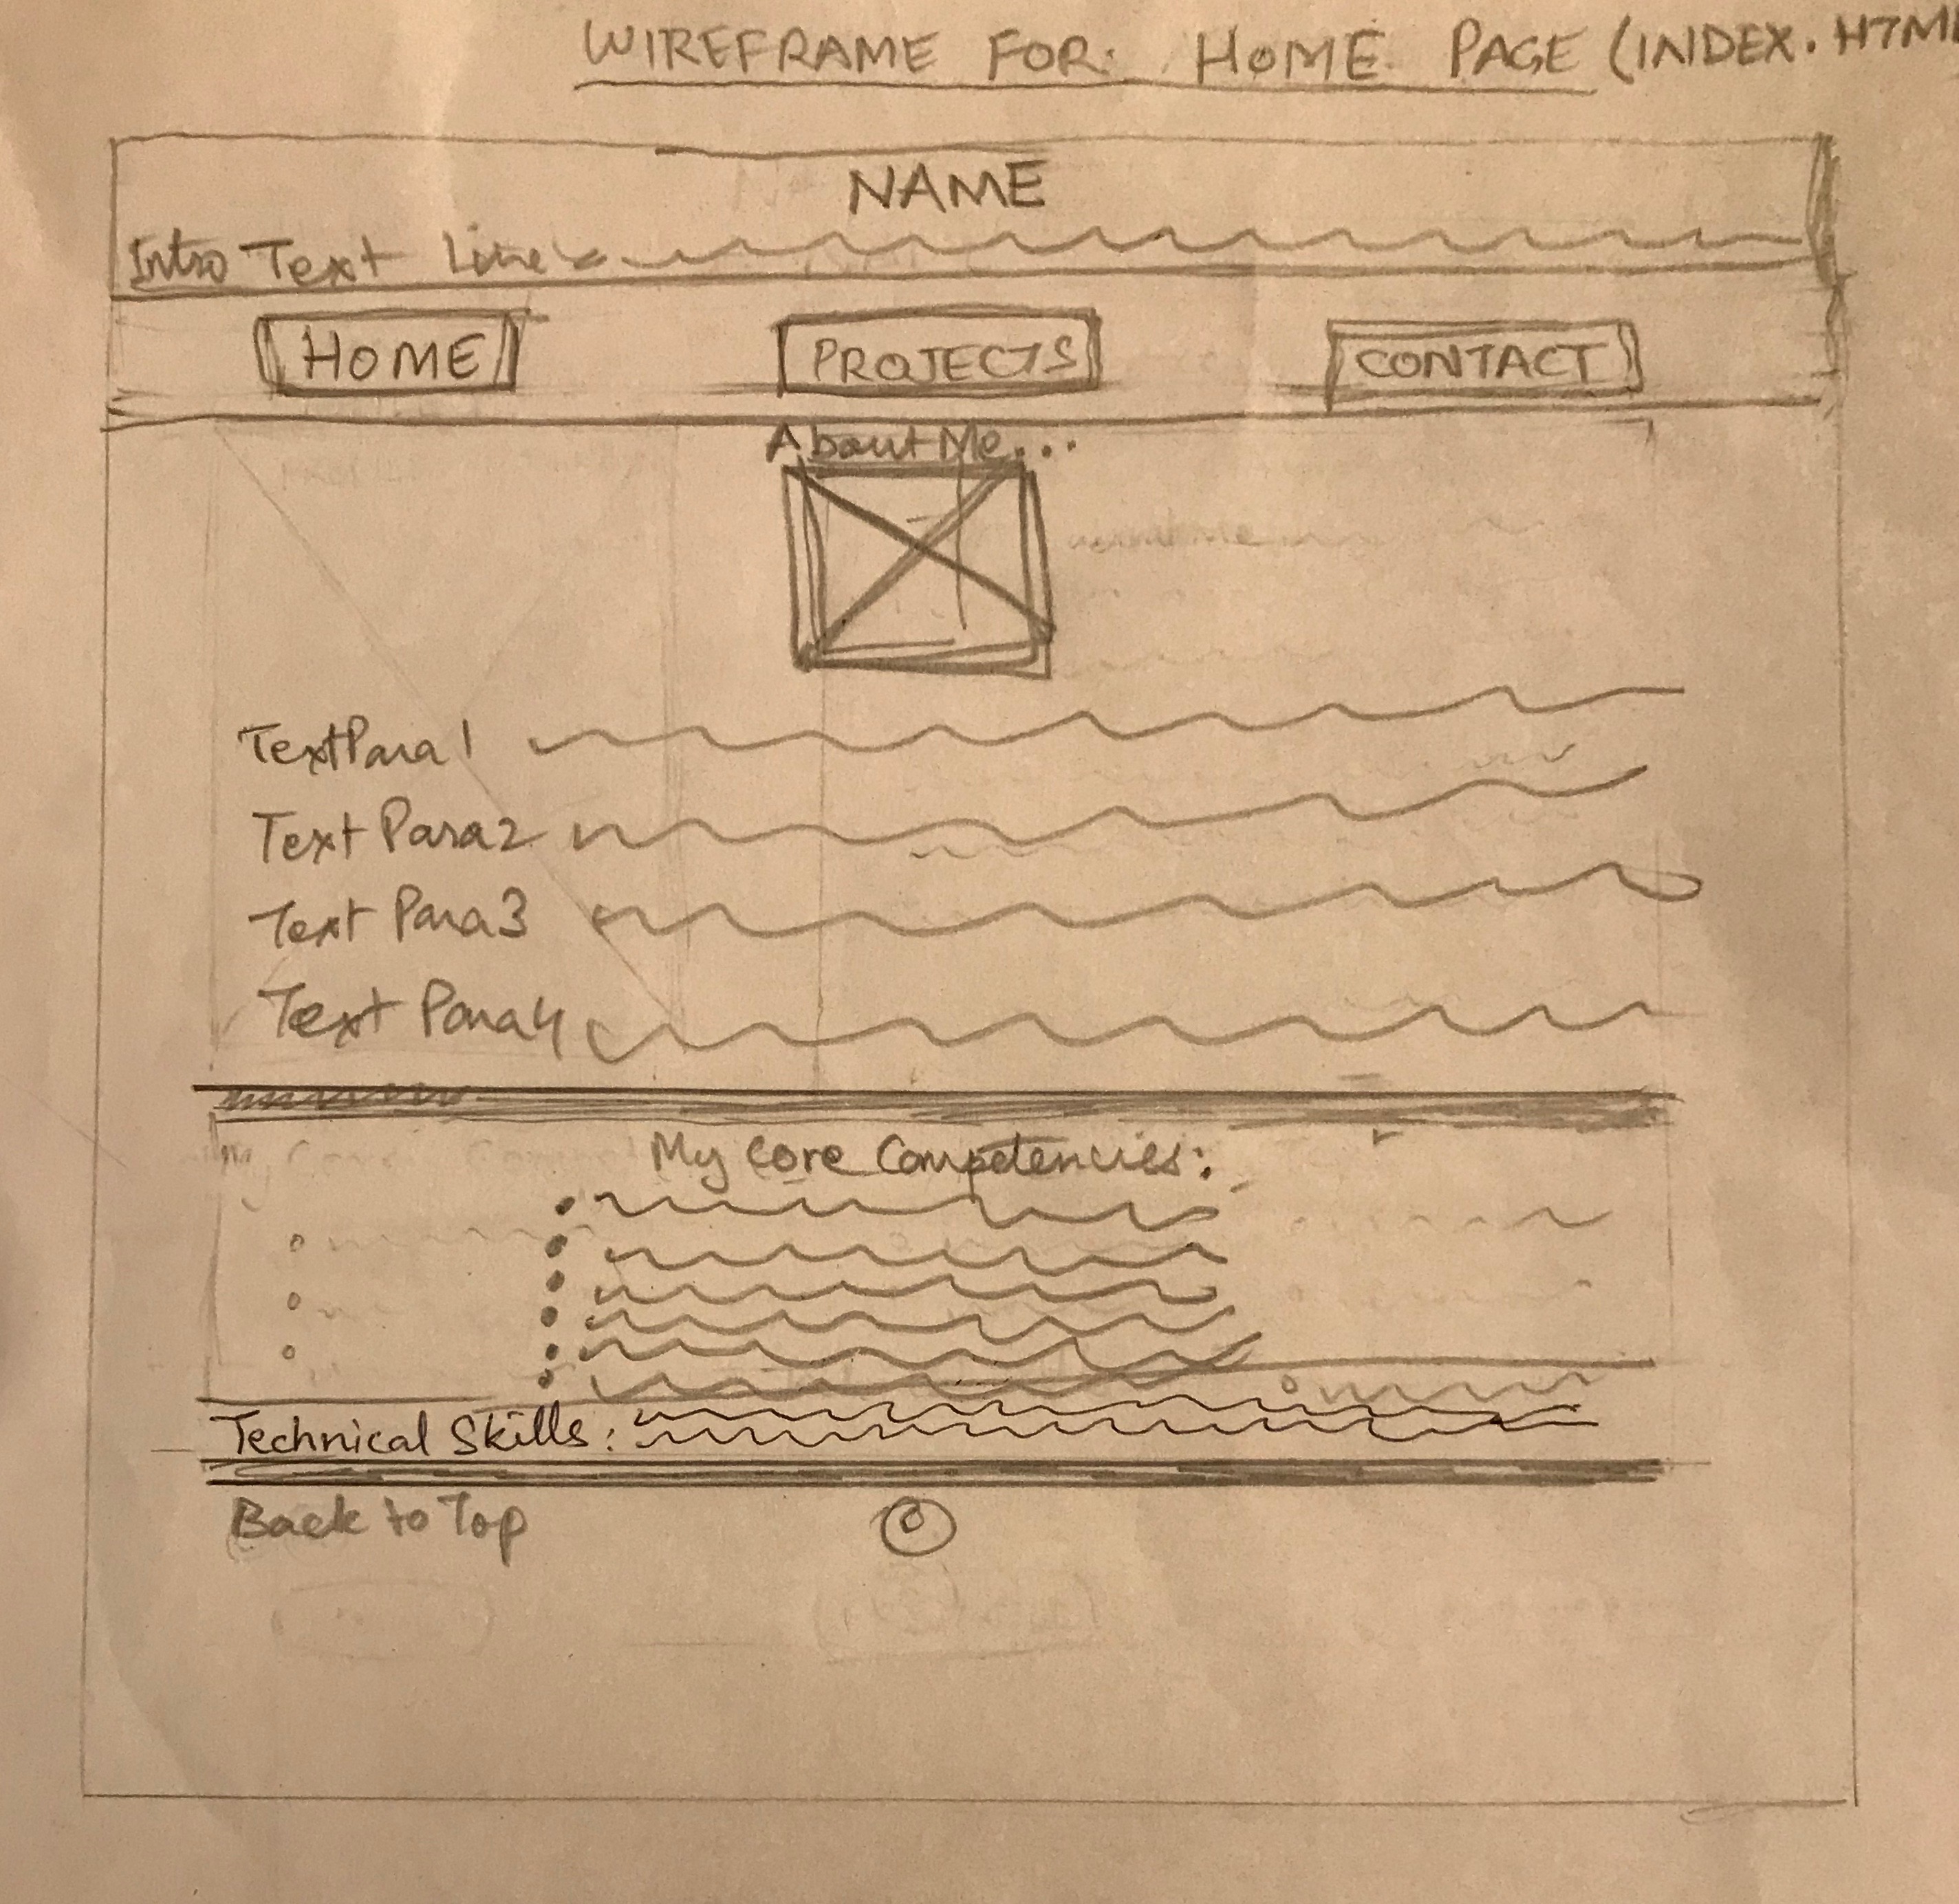 WIREFRAME FOR: HOME PAGE (INDEX.HTML
NAME
Intro Text Line
HOME PROJECTS CONTACT
About Me...
Text Para 1
Text Para 2
Text Para 3
Text Para 4
My Core Competencies:
Technical Skills:
Back to Top